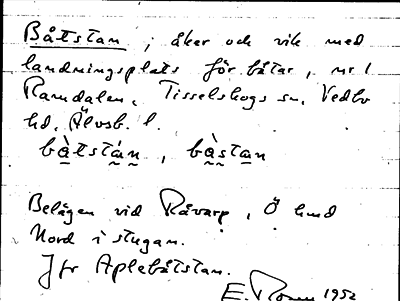 Båtstan ; åker och vik med
landningsplats för båtar, nr 1
Ramdalen. Tisselskogs sn. Vedbo
hd. Älvsb. l.
bàtstán , bàstan
Belägen vid Råvarp, Ö
Nord i stugan.
Jfr Aplebåtstan.
E. 1952